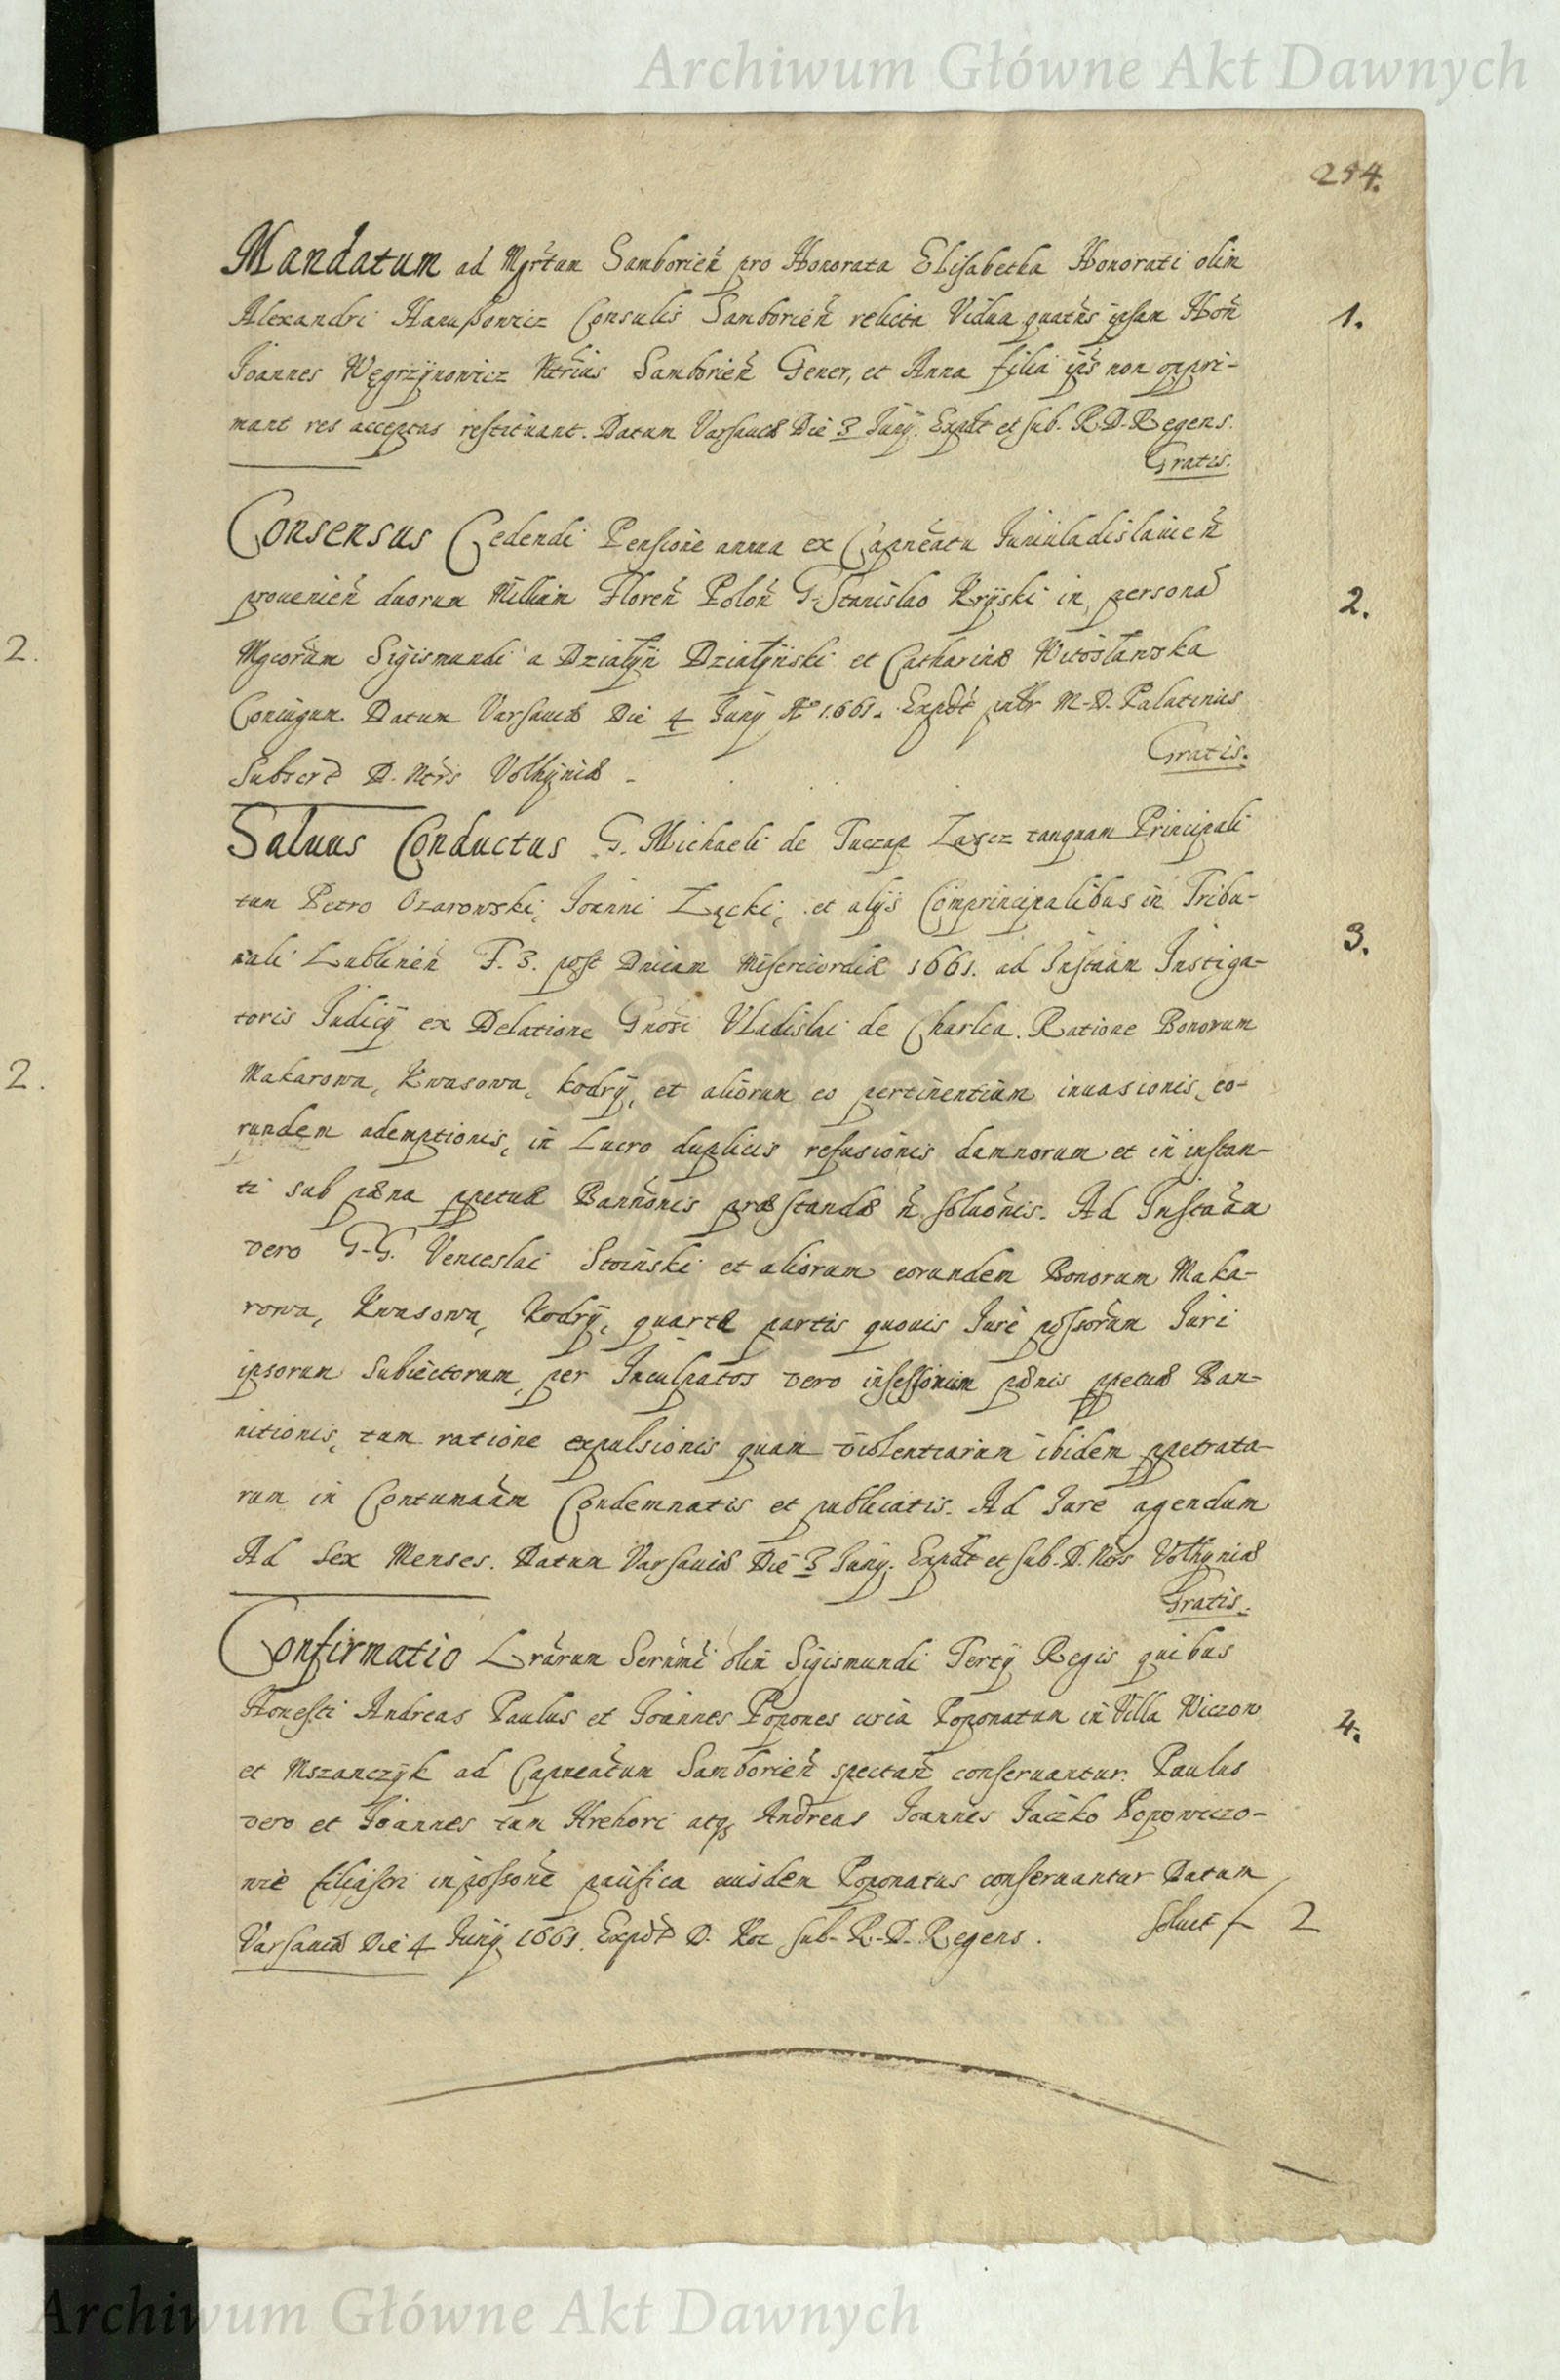 Archiwum Główne Akt Dawnych
254.
Mandatum ad Mgrtum Samborien̄ pro Honorata Elisabetha Honorati olim
Alexandri Hanußowicz Consulis Samborien̄ relicta Vidua quatn̄s ipsam Hon̄
Joannes Węgrzÿnowicz Samborien̄ Gener, et Anna filia ips̄ non oppri-
mant res acceptas restituant. Datum Varsauiæ Die 3 Junÿ. Expdt et sub. R. D. Regens.
Gratis.
1.
Consensus Cedendi Pensione annua ex Capneātu Juniuladislauien̄
prouenien̄ duorum Millium Floren̄ Polon̄ G. Stanislao Krÿski in persona
Mgcorūm Sigismundi a Działÿn Działÿński et Catharinæ Witosławska
Coniugum. Datum Varsauiæ Die 4 Junÿ Ao 1661. Expdt M. D. Palatinus
Gratis.
Subscr D. Nt̄rs Volhÿniæ
2.
Saluus Conductus G. Michaeli de Tuczap Łaszcz tanquam Principali
tum Petro Ozarowski, Joanni Łącki, et alijs Comprincipalibus in Tribu-
nali Lublinen̄ F. 3. post Dnicam Misericordiæ 1661. ad Instām Instiga-
toris Judicÿ ex Delatione Gnosi Vladislai de Charlea. Ratione Bonorum
Makarowa, Kwasowa, Kodrÿ, et aliorum eo pertinentium inuasionis, eo-
rundem ademptionis, in Lucro duplicis refusionis damnorum et in instan-
ti sub pæna ppetuæ Bannōnis præstandæ n̄ soluōnis. Ad Instāam
vero G.G. Venceslai Stoinski et aliorum eorundem Bonorum Maka-
rowa, Kwasowa, Kodrÿ, quartæ partis quouis Jure possōrum Juri
ipsorum Subiectorum, per Inculpatos vero insessorum pænis ppetuæ Ban-
nitionis, tam ratione expulsionis quam violentiarum ibidem ppetrata-
rum in Contumaām Condemnatis et publicatis. Ad Jure agendum
Ad Sex Menses. Datum Varsauiæ Die 3 Junÿ. Expdt et sub. D. Nt̄rs Volhyniæ
Gratis.
3.
Confirmatio Lrārum Sernm̄i olim Sigismundi Tertÿ Regis quibus
Honesti Andreas Paulus et Joannes Popones circa Poponatum in Villa Wiczow
et Mszanczÿk ad Capneātum Samborien̄ spectan̄ conseruantur. Paulus
vero et Joannes tum Hrehori atqz Andreas Joannes Jaczko Popowiczo-
wie filiastri in possone pacifica eiusdem Poponatus conseruantur Datum
Varsauiæ Die 4 Junÿ 1661. Expdt D. Roc sub. R. D. Regens.
Soluit f 2
4.
2.
2.
Archiwum Główne Akt Dawnych